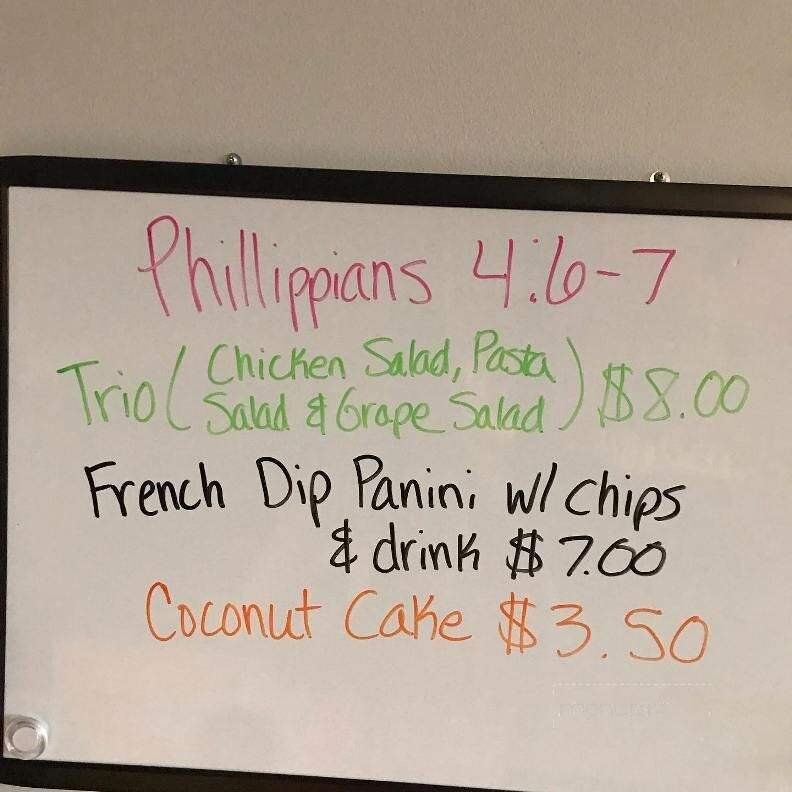 Phillippians 4:6-7
Trio ( Chicken Salad, Pasta
Salad & Grape Salad ) $8.00
French Dip Panini w/ chips
& drink $7.00
Coconut Cake $3.50